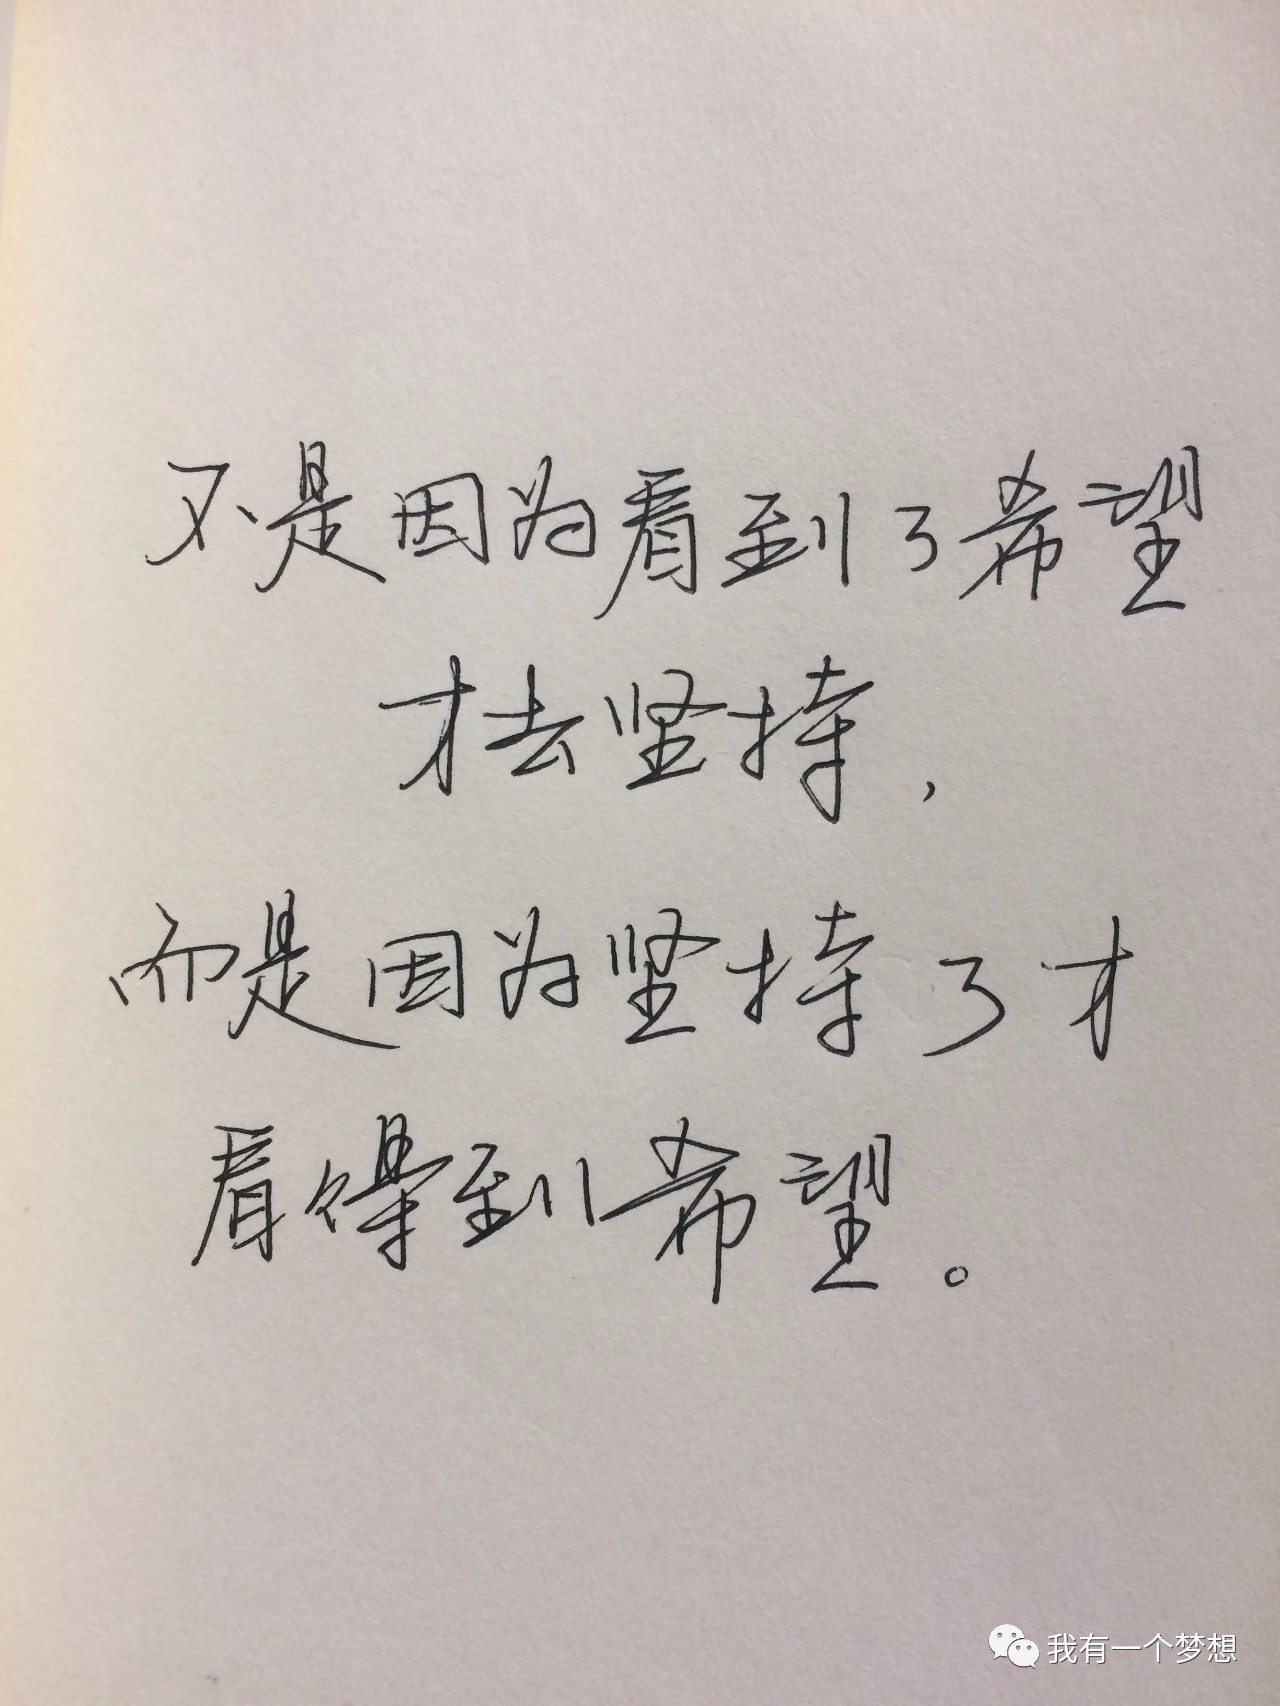 不是因为看到了希望
才去坚持，
而是因为坚持了才
看得到希望。
我有一个梦想